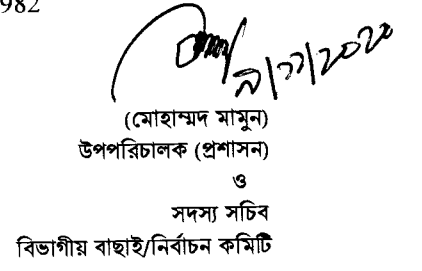 982
৯/১১/২০২০
(মোহাম্মদ মামুন)
উপপরিচালক (প্রশাসন)
ও
সদস্য সচিব
বিভাগীয় বাছাই/নির্বাচন কমিটি